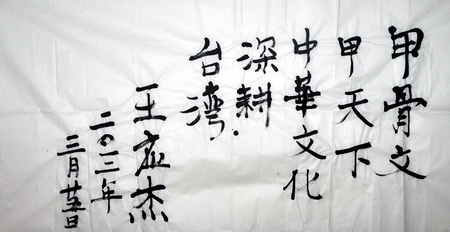 甲骨文
甲天下
中華文化
深耕
台灣.
王应杰
二〇一三年
三月廿五日